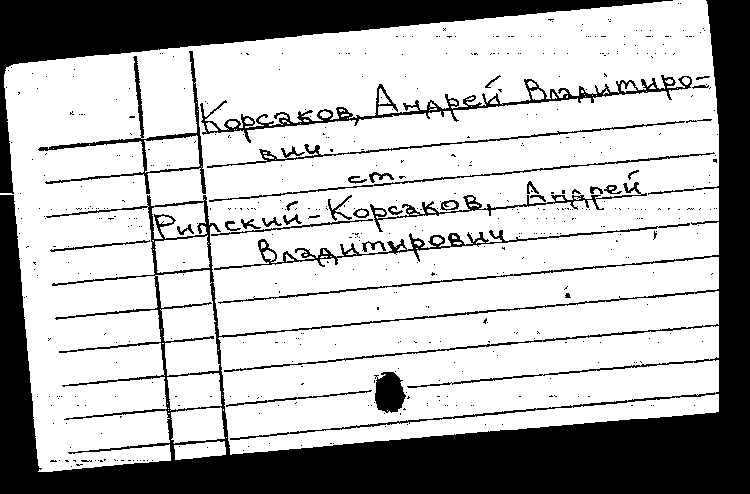 Корсаков, Андрей Владимиро-
вич.
ст.
Римский-Корсаков, Андрей
Владимирович